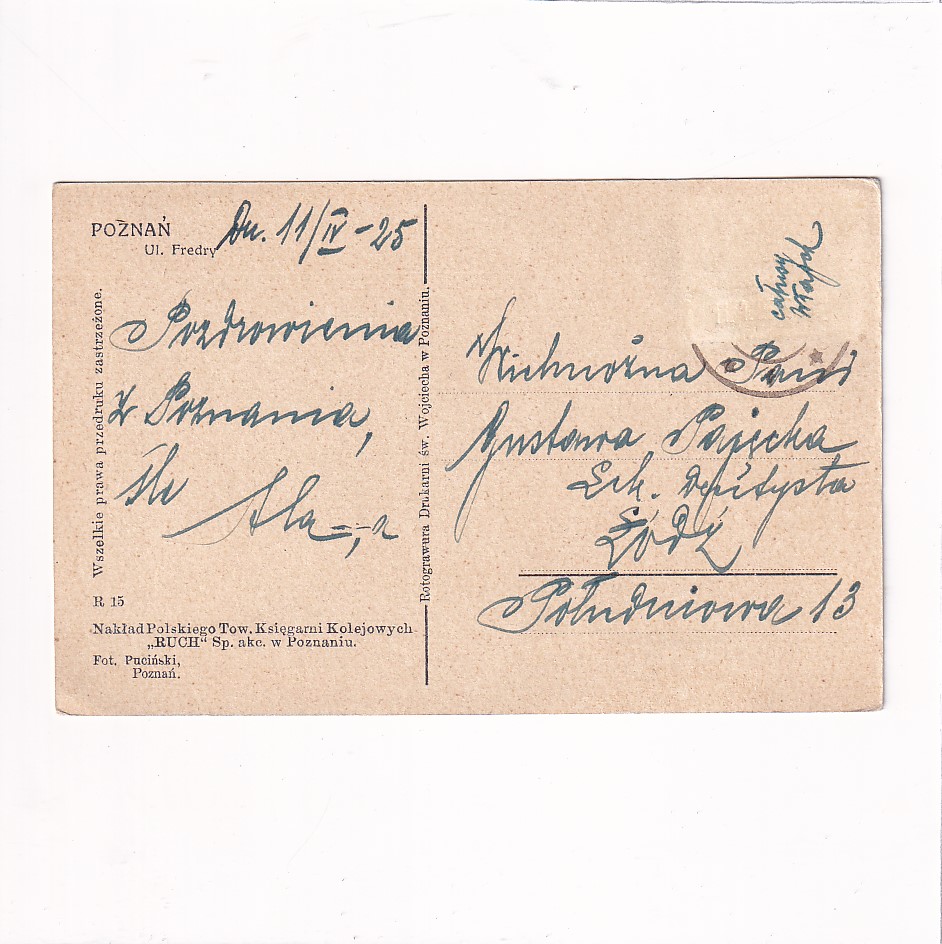 POZNAŃ
Ul. Fredry
Dn. 11/IV-25
Pozdrowienia
z Poznania,
śle
Wszelkie prawa przedruku zastrzeżone.
R 15
Nakład Polskiego Tow. Księgarni Kolejowych
„RUCH“ Sp. akc. w Poznaniu.
Fot. Puciński,
Poznań.
Rotograwura Drukarni św. Wojciecha w Poznaniu.
całusy
Wielmożna Pani
Gustawa Pajęcka
Lek. Dentysta
Łódź
Południowa 13